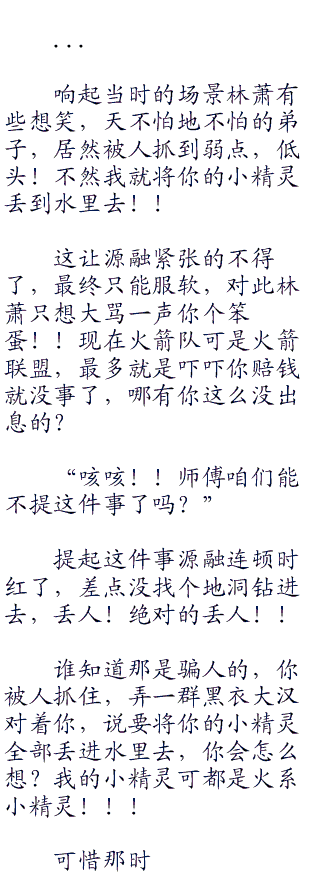 ...
响起当时的场景林萧有
些想笑，天不怕地不怕的弟
子，居然被人抓到弱点，低
头！不然我就将你的小精灵
丢到水里去！！
这让源融紧张的不得
了，最终只能服软，对此林
萧只想大骂一声你个笨
蛋！！现在火箭队可是火箭
联盟，最多就是吓吓你赔钱
就没事了，哪有你这么没出
息的？
“咳咳！！师傅咱们能
不提这件事了吗？”
提起这件事源融连顿时
红了，差点没找个地洞钻进
去，丢人！绝对的丢人！！
谁知道那是骗人的，你
被人抓住，弄一群黑衣大汉
对着你，说要将你的小精灵
全部丢进水里去，你会怎么
想？我的小精灵可都是火系
小精灵！！！
可惜那时